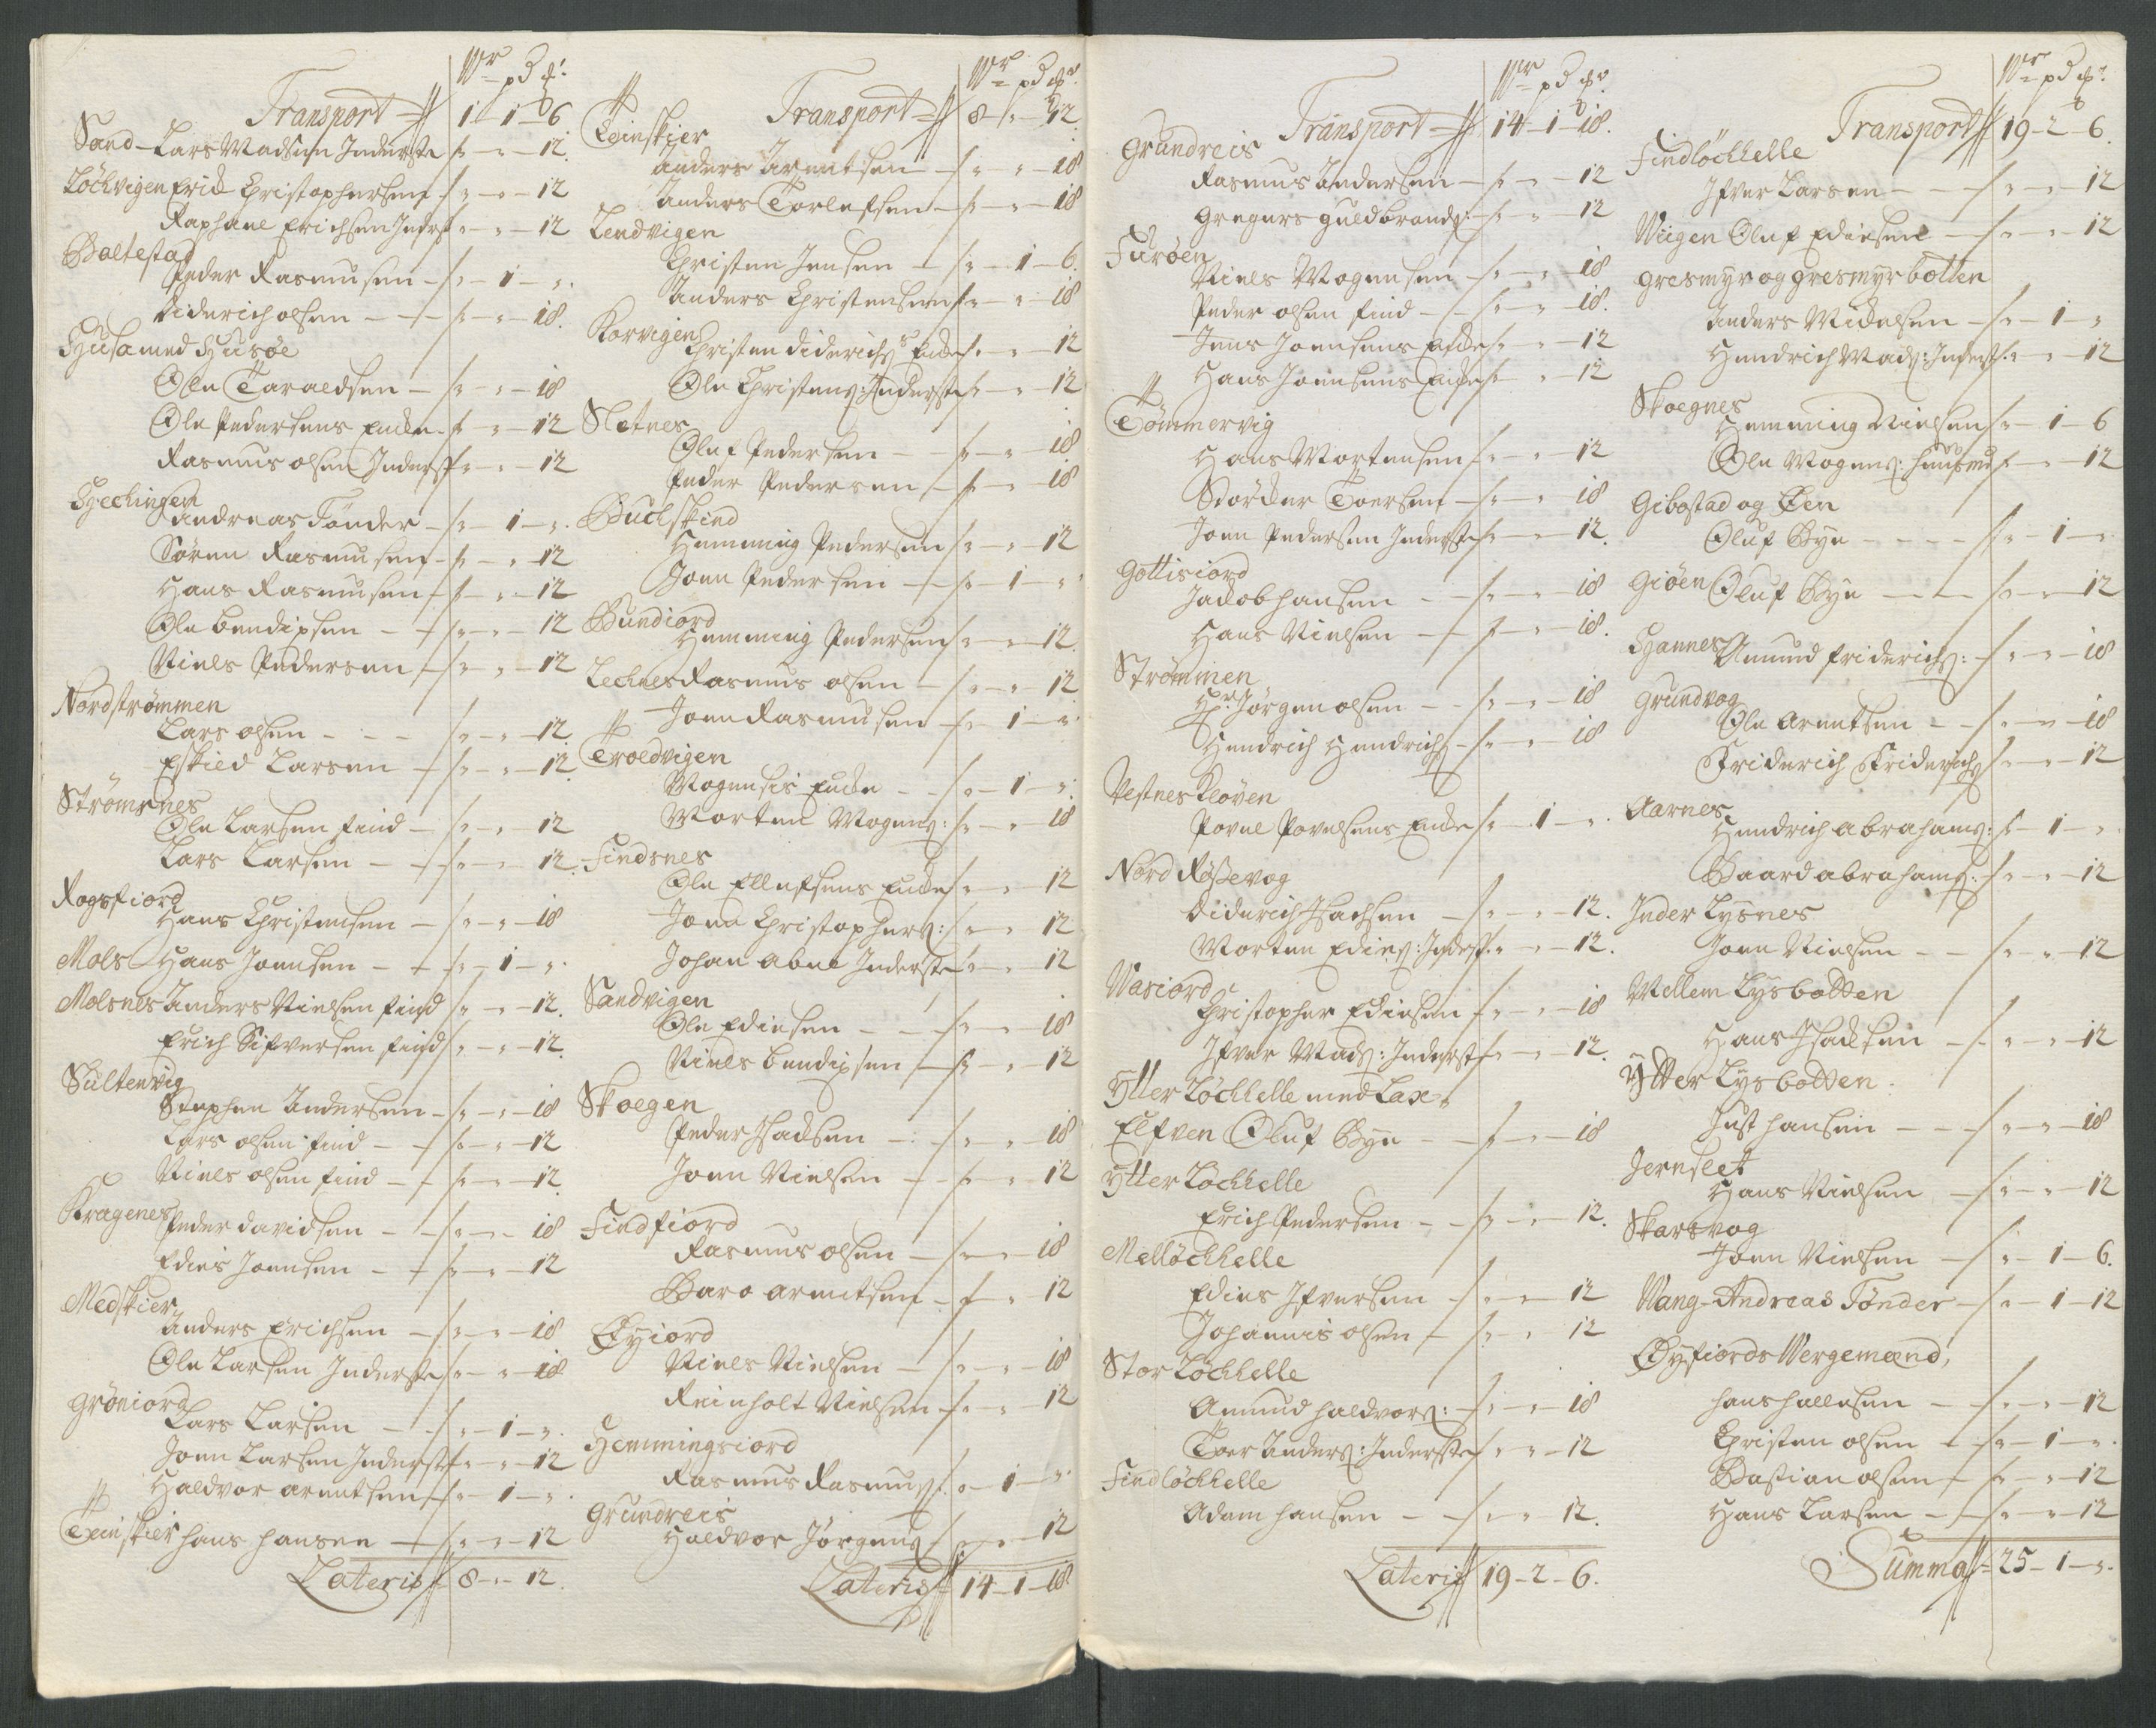 Wr pd ℔r
Transport 1 1 6
Sand Lars Madsen Inderste " " 12
Löchvigen Erich Christophersen " " 12
Raphael Erichsen Inderst " " 12
Baltestad
Peder Rasmusen " 1 "
Diderich olsen " " 18
Husa med Husøe
Ole Taraldsen " " 18
Ole Pedersens Encke " " 12
Rasmus olsen Inderst " " 12
Gjechingen
Andreas Tönder " 1 "
Sören Rasmusen " " 12
Hans Rasmusen " " 12
Ole bendixsen " " 12
Niels Pedersen " " 12
Nordströmmen
Lars olsen " " 12
Eskild Larsen " " 12
Strömsnes
Ole Larsen find " " 12
Lars Larsen " " 12
Rogsfiord
Hans Christensen " " 18
Mols Hans Joensen " 1 "
Molsnes Anders Nielsen find " " 12
Erich Sifversen find " " 12
Sultenvig
Stephen Andersen " " 18
Lars olsen find " " 12
Niels olsen find " " 12
Kragenes
Peder davidsen " " 18
Edies Joensen " " 12
Medskier
Anders Erichsen " " 18
Ole Larsen Inderste " " 18
Gröniord
Lars Larsen " 1 "
Joen Larsen Inderst " " 12
Haldvor arentsen " 1 "
Teinskier hans hansen " " 12
Lateris 8 " 12
Wr pd ℔r
Transport 8 " 12
Teinskier
Anders Arentsen " " 18
Anders Torlefsen " " 18
Lendvigen
Christen Jensen " 1 6
Anders Christensen " " 18
Korvigen
Christen diderichs Encke " " 12
Ole Christens: Inderste " " 12
Sletnes
Oluf Pedersen " " 18
Peder Pedersen " " 18
Buchskind
Hemming Pedersen " " 12
Joen Pedersen " 1 "
Bundiord
Hemming Pedersen " " 12
Lechnes Rasmus olsen " " 12
Joen Rasmusen " 1 "
Troldvigen
Mogensis Encke " 1 "
Morten Mogens: " " 18
Findsnes
Ole Ellefsens Encke " " 12
Joen Christophers: " " 12
Johan abel Inderste " " 12
Sandvigen
Ole Ediesen " " 18
Niels bendixsen " " 12
Skoegen
Peder Isacksen " " 18
Joen Nielsen " " 12
Findfiord
Rasmus olsen " " 18
Baro arentsen " " 12
Øyiord
Niels Nielsen " " 18
Reinholt Nielsen " " 12
Hemmingsiord
Rasmus Rasmus: " 1 "
Grundreis
Haldvor Jörgens " " 12
Lateris 14 1 18
Wr pd ℔r
Transport 14 1 18
Grundreis
Rasmus Andersen " " 12
Gregers guldbrands: " " 12
Furöen
Niels Mogensen " " 18
Peder olsen find " " 18
Jens Joensens Encke " " 12
Hans Joensens Encke " " 12
Tömmervig
Hans Mortensen " " 12
Störcker Toersen " " 18
Joen Pedersen Inderste " " 12
Gottisiord
Jacob hansen " " 18
Hans Nielsen " " 18
Strömmen
Hr. Jörgen olsen " " 18
Hendrich Hendrichs " " 18
Vestnes Klöven
Povel Povelsens Encke " 1 "
Nord Rössevog
Diderich Isachsen " " 12
Morten Edies: Inderst " " 12
Wasiord
Christopher Ediesen " " 18
Ifver Mads: Inderst " " 12
Ytter Löchhelle med Lax
Elfven Oluf Bye " " 18
Ytter Löchhelle
Erich Pedersen " " 12
Mellöchhelle
Edies Ifversen " " 12
Johannis olsen " " 12
Stor Löchhelle
Amund haldvors: " " 18
Toer Anders: Inderste " " 12
Findlöchhelle
Adam hansen " " 12
Lateris 19 2 6
Wr pd ℔r
Transport 19 2 6
Findlöchhelle
Ifver Larsen " " 12
Wiigen Oluf Ediesen " " 12
Gresmyr og Gresmyrbotten
Anders Michelsen " 1 "
Hendrich Mads: Inderst " " 12
Skoegnes
Hemming Nielsen " 1 6
Ole Mogens: " " 12
Gibostad og Øen
Oluf Bye " 1 "
Giöen Oluf Bye " " 12
Hannes Amund friderichs: " " 18
Grundvog
Ole Arentsen " " 18
Friderich Friderichs " " 12
Aarnes
Hendrich abrahams: " 1 "
Baard abrahams: " " 12
Inder Lysnes
Joen Nielsen " " 12
Mellem Lysbotten
Hans Isacksen " " 12
Ytter Lysbotten
Just hansen " " 18
Jernslet
Hans Nielsen " " 12
Skarsvog
Joen Nielsen " 1 6
Wang Andreas Tönder " 1 12
Øyfiords Wergemænd,
hans hallesen " " 12
Christen olsen " 1 "
Bastian olsen " " 12
Hans Larsen " " 12
Summa 25 1 "